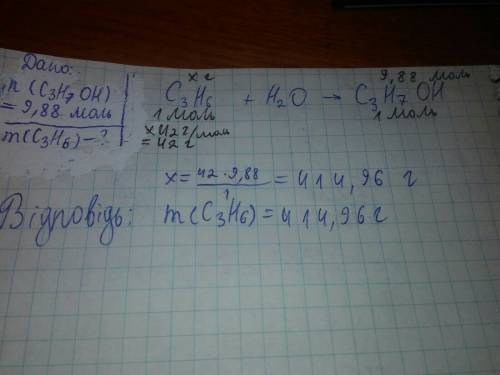 Дано:
n (C₃H₇OH)
= 9,88 моль
m(C₃H₆) - ?
x г 9,88 моль
C₃H₆ + H₂O → C₃H₇OH
1 моль 1 моль
x 42 г/моль
= 42 г
x = 42 · 9,88 / 1 = 414,96 г
Відповідь: m(C₃H₆) = 414,96 г